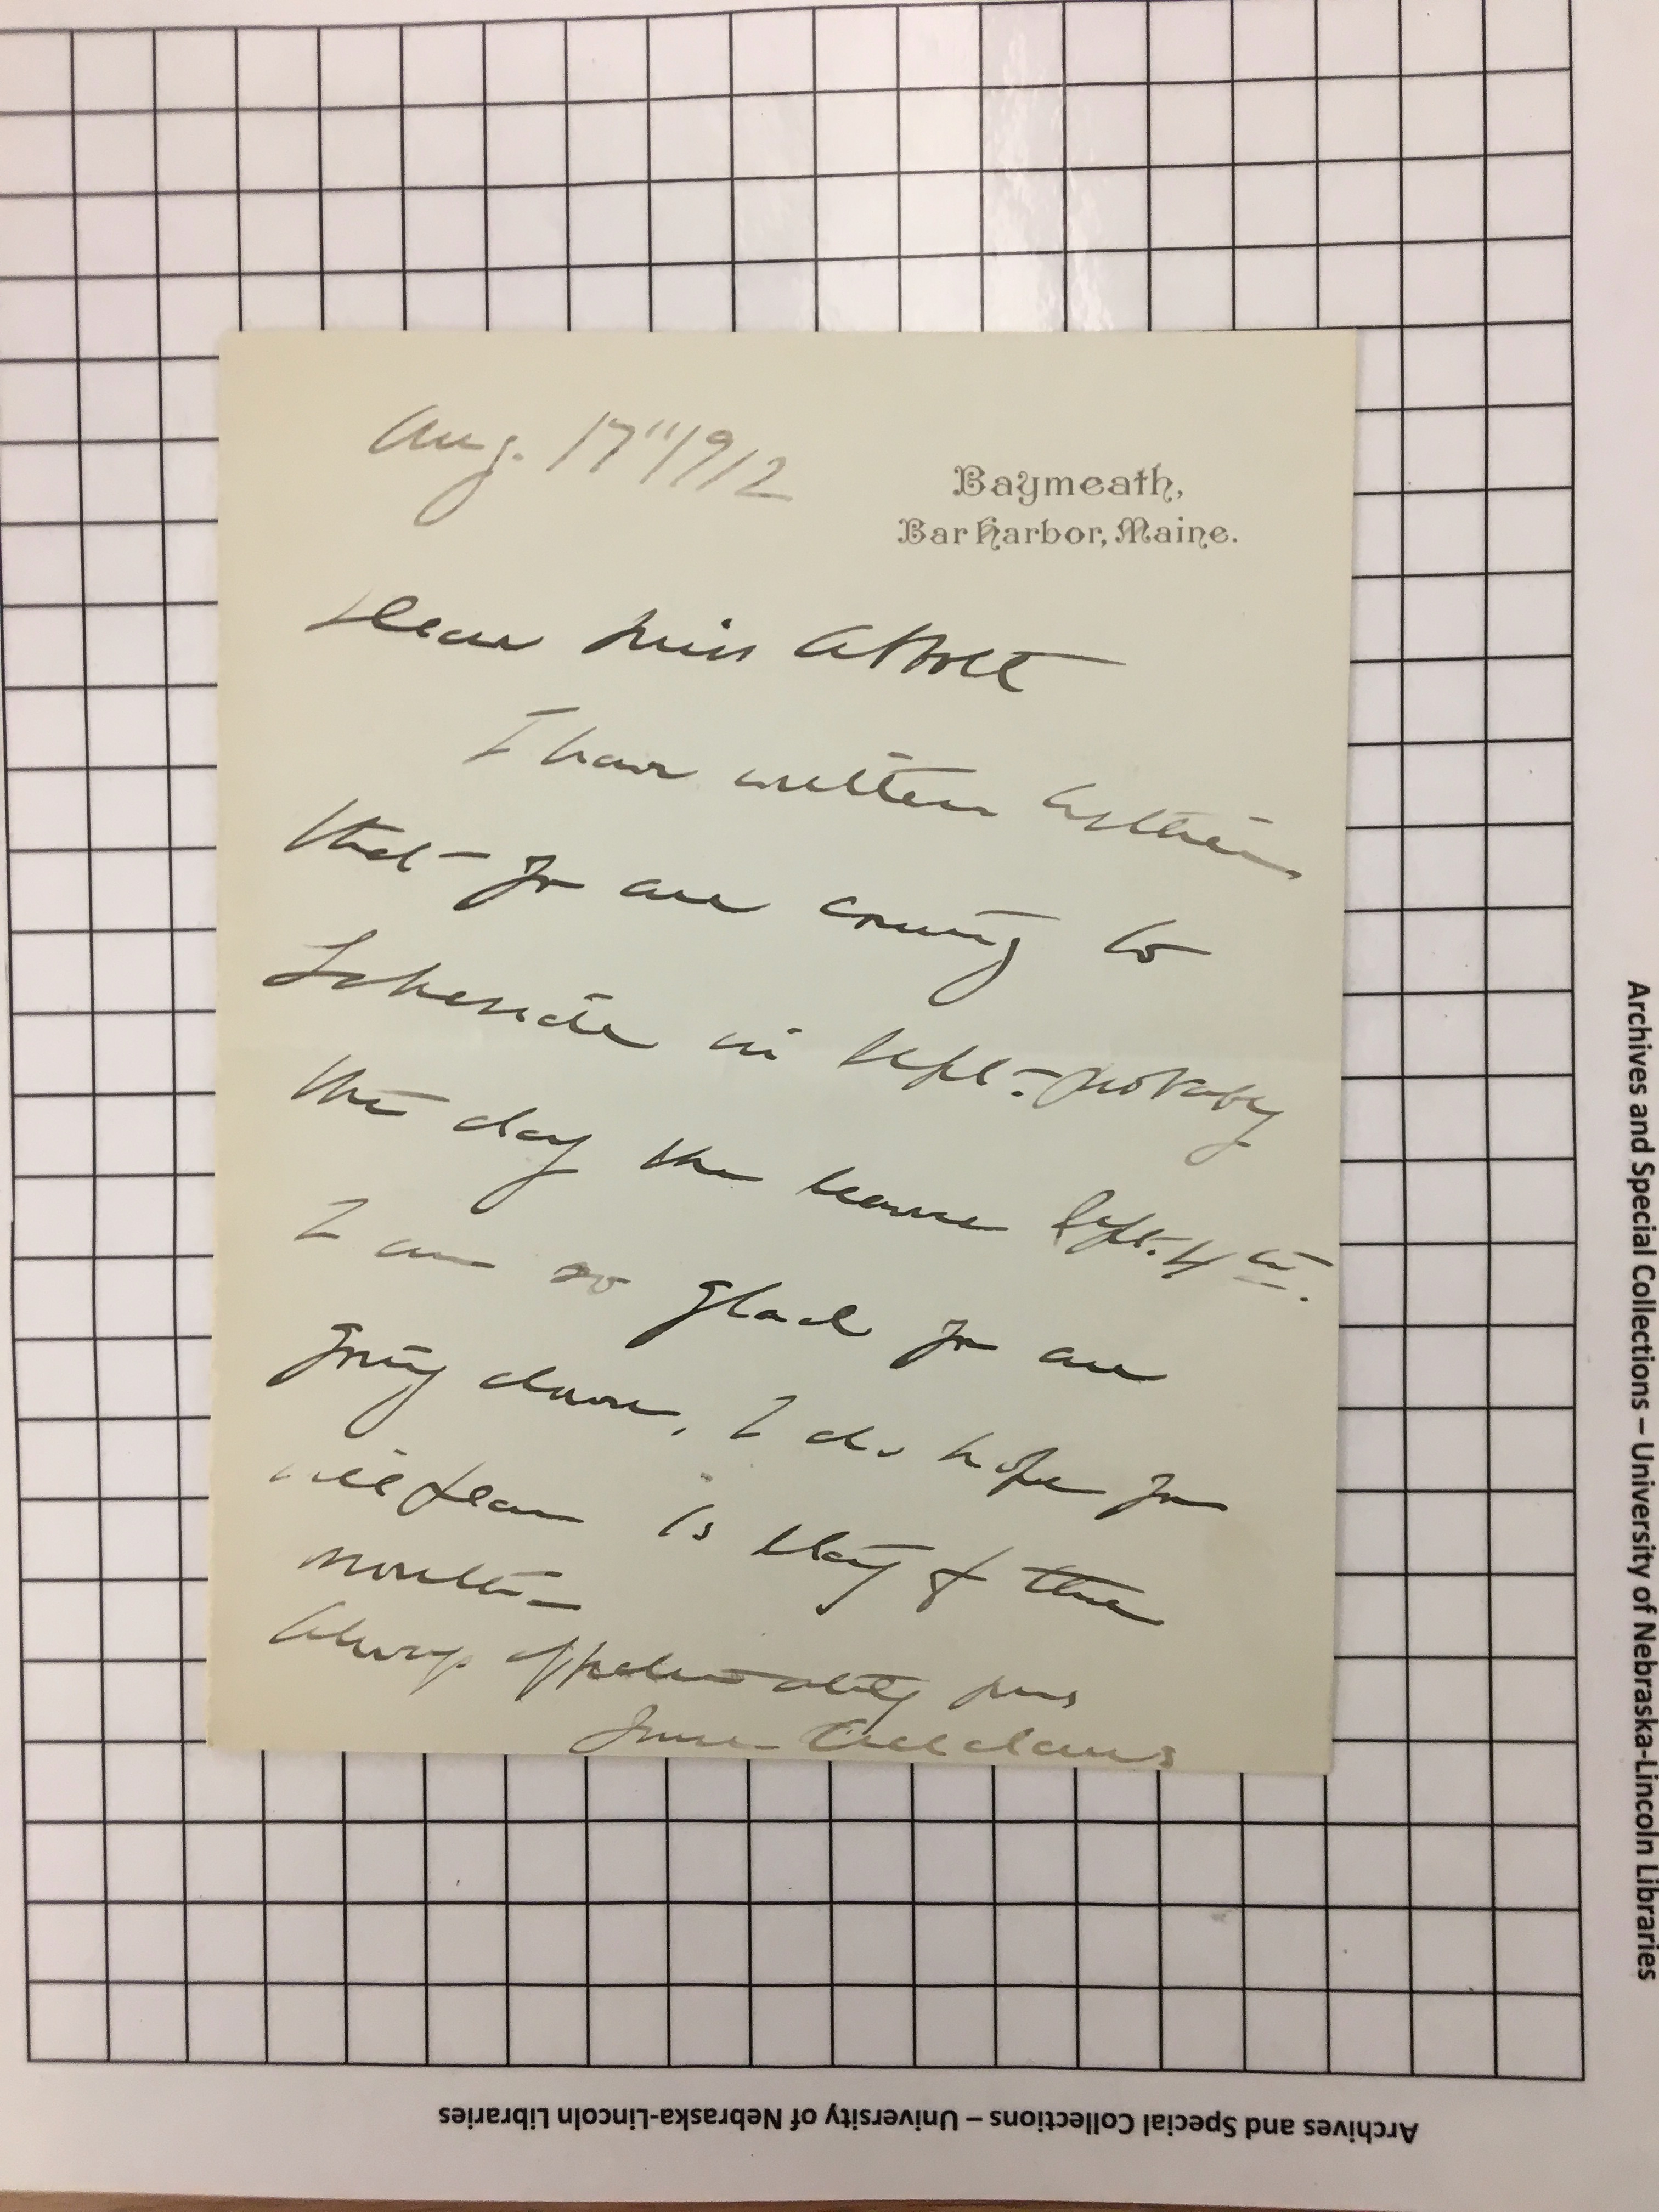 Aug. 17" 1912
Baymeath,
Bar Harbor, Maine.
Dear Miss Abbott
I have written Esther
that you are coming to
Lakeside in Sept - probably
the day she leaves Sept. 4th.
I am so glad you are
going down, I do hope you
will plan to stay & the
month -
Always affectionately yours
Jane Addams
Archives and Special Collections – University of Nebraska-Lincoln Libraries
Archives and Special Collections – University of Nebraska-Lincoln Libraries